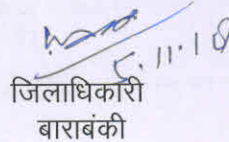 5.11.18
जिलाधिकारी
बाराबंकी